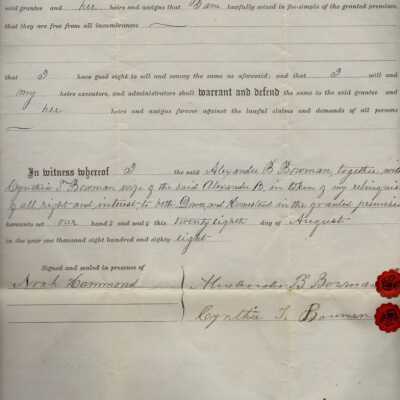 said grantee and her heirs and assigns that I am lawfully seized in fee-simple of the granted premises,
that they are free from all incumbrances
that I have good right to sell and convey the same as aforesaid; and that I will and
my heirs executors, and administrators shall warrant and defend the same to the said grantee and
her heirs and assigns forever against the lawful claims and demands of all persons
In witness whereof I the said Alexander B Bowman, together with
Cynthia T. Bowman wife of the said Alexander B. in token of my relinquis
of all right and interest to both Dower and Homestead in the granted premises
hereunto set our hands and seals this twenty eighth day of August
in the year one thousand eight hundred and eighty eight
Signed and sealed in presence of
Noah Hammond
Alexander B Bowman
Cynthia T. Bowman